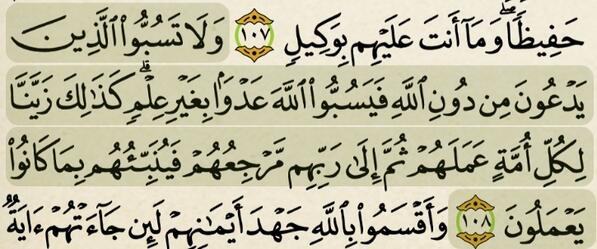 حَفِيظٗاۖ وَمَآ أَنتَ عَلَيۡهِم بِوَكِيلٖ ١٠٧ وَلَا تَسُبُّواْ ٱلَّذِينَ
يَدۡعُونَ مِن دُونِ ٱللَّهِ فَيَسُبُّواْ ٱللَّهَ عَدۡوَۢا بِغَيۡرِ عِلۡمٖۗ كَذَٰلِكَ زَيَّنَّا
لِكُلِّ أُمَّةٍ عَمَلَهُمۡ ثُمَّ إِلَىٰ رَبِّهِم مَّرۡجِعُهُمۡ فَيُنَبِّئُهُم بِمَا كَانُواْ
يَعۡمَلُونَ ١٠٨ وَأَقۡسَمُواْ بِٱللَّهِ جَهۡدَ أَيۡمَٰنِهِمۡ لَئِن جَآءَتۡهُمۡ ءَايَةٞ